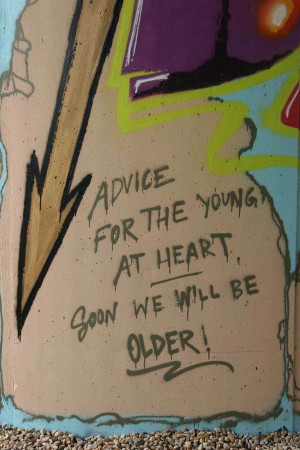 ADVICE
FOR THE YOUNG
AT HEART.
SOON WE WILL BE
OLDER!